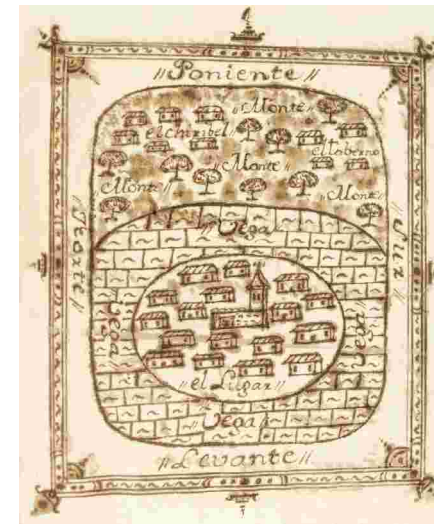 Poniente
Monte
el Chiribel
el Taberno
Monte
Monte
Monte
Norte
Sur
Vega
Vega
Vega
el Lugar
Vega
Levante